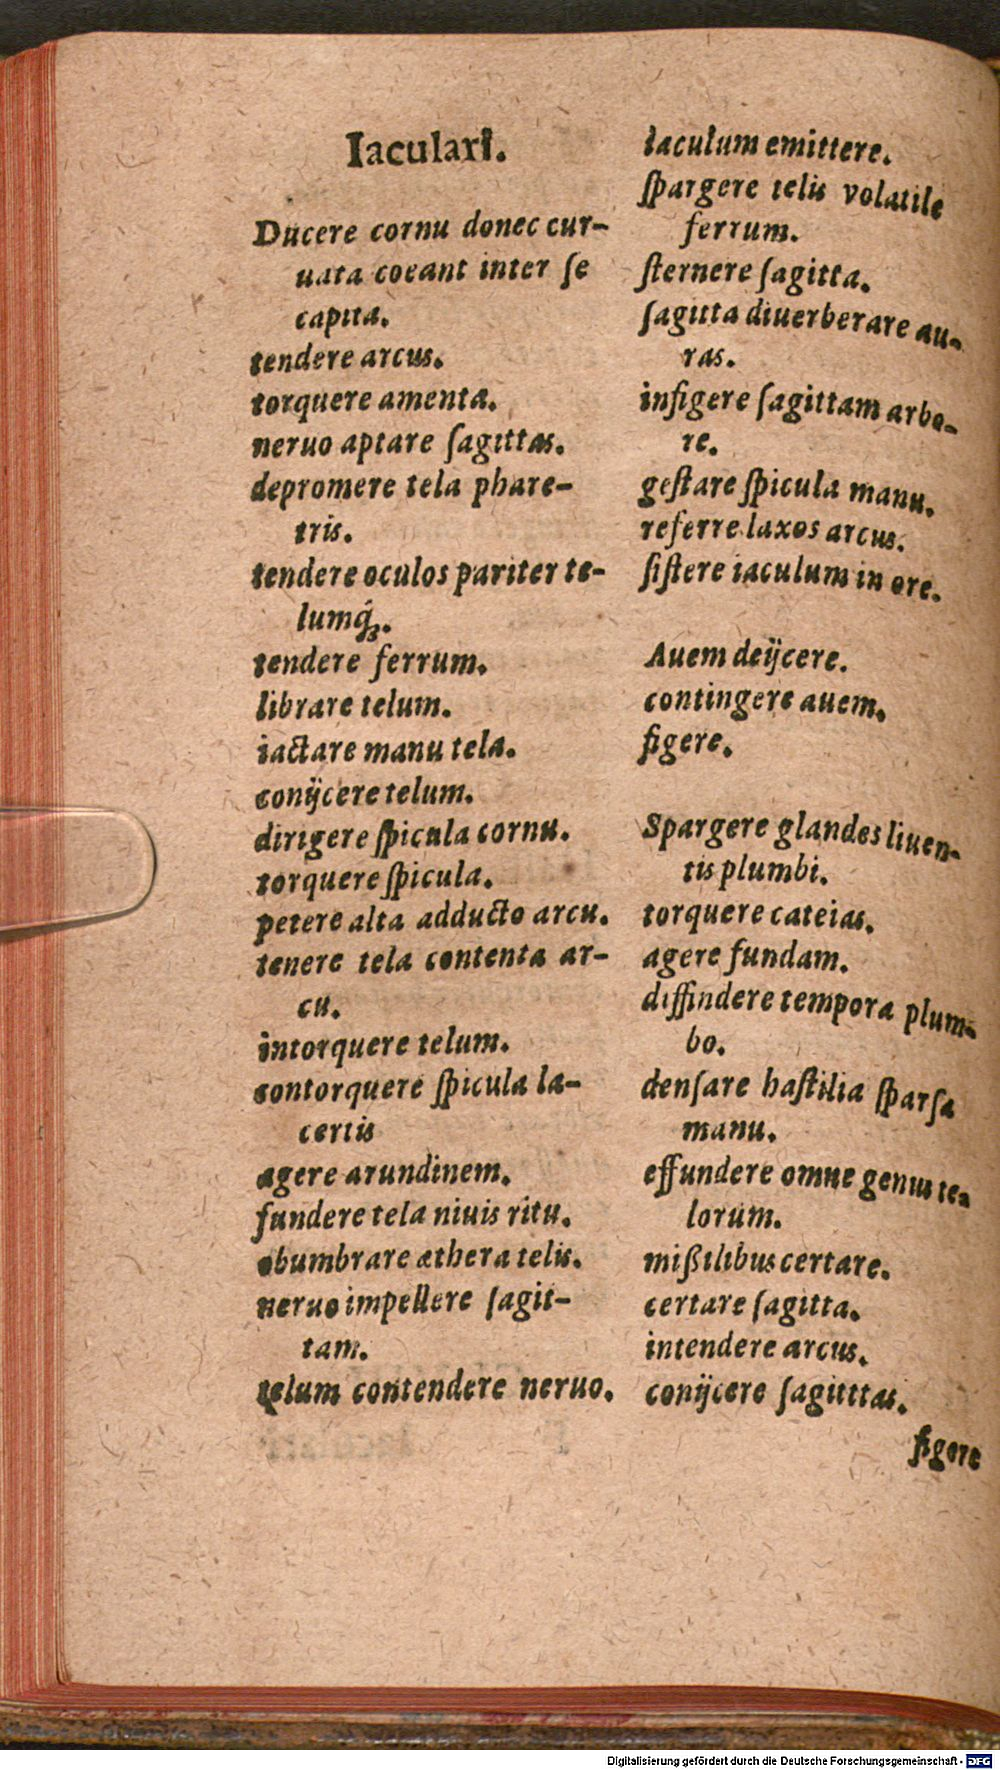 Iaculari.
Ducere cornu donec cur-
uata coeant inter ſe
capita.
tendere arcus.
torquere amenta.
neruo aptare ſagittas.
depromere tela phare-
tris.
tendere oculos pariter te-
lumq́;.
tendere ferrum.
librare telum.
iactare manu tela.
conijcere telum.
dirigere ſpicula cornu.
torquere ſpicula.
petere alta adducto arcu.
tenere tela contenta ar-
cu.
intorquere telum.
contorquere ſpicula la-
certis
agere arundinem.
fundere tela niuis ritu.
obumbrare æthera telis.
neruo impellere ſagit-
tam.
telum contendere neruo.
Iaculum emittere.
ſpargere telis volatile
ferrum.
ſternere ſagitta.
ſagitta diuerberare au-
ras.
infigere ſagittam arbo-
re.
geſtare ſpicula manu.
referre laxos arcus.
ſiſtere iaculum in ore.
Auem deijcere.
contingere auem.
figere.
Spargere glandes liuen-
tis plumbi.
torquere cateias.
agere fundam.
diffindere tempora plum-
bo.
denſare haſtilia ſparſa
manu.
effundere omne genus te-
lorum.
mißilibus certare.
certare ſagitta.
intendere arcus.
conijcere ſagitttas.
figere
Digitalisierung gefördert durch die Deutsche Forschungsgemeinschaft - DFG